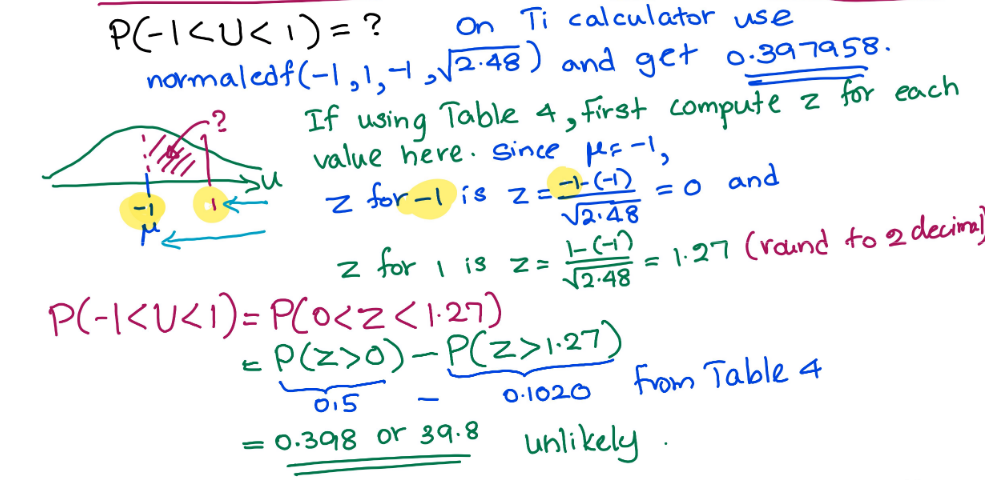 P(-1<U<1)=? On Ti calculator use
normalcdf(-1,1,-1,√2.48) and get 0.397958.
If using Table 4, first compute z for each
value here. Since μ=-1,
z for -1 is z = (-1-(-1))/√2.48 = 0 and
z for 1 is z = (1-(-1))/√2.48 = 1.27 (round to 2 decimal)
?
U
-1 1
μ
P(-1<U<1)=P(0<Z<1.27)
= P(Z>0) - P(Z>1.27)
0.5 - 0.1020 from Table 4
= 0.398 or 39.8 unlikely.